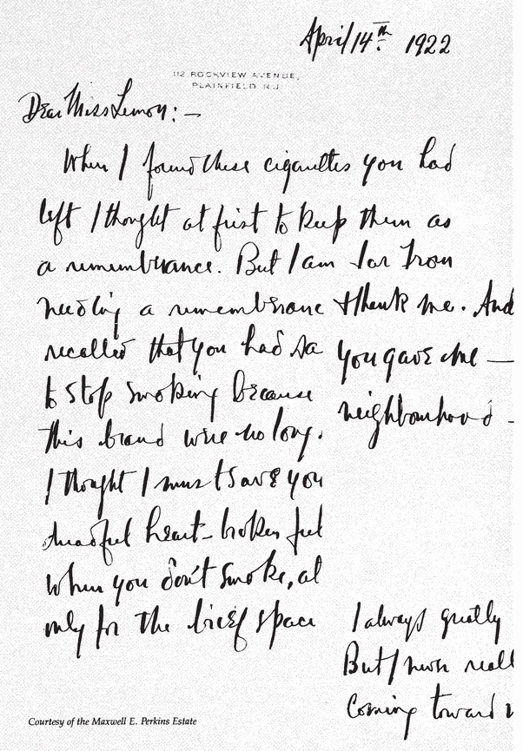 April 14th 1922
112 ROCKVIEW AVENUE,
PLAINFIELD N.J.
Dear Miss Lemon:—
When I found these cigarettes you had
left I thought at first to keep them as
a remembrance. But I am far from
needing a remembrance
recalled that you had sa
to stop smoking because
this brand were no long
I thought I must save you
dreadful heart-broken feel
when you don't smoke, al
only for the brief space
thank me. And
you gave me —
neighbourhood -
I always greatly
But I never reall
coming toward
Courtesy of the Maxwell E. Perkins Estate